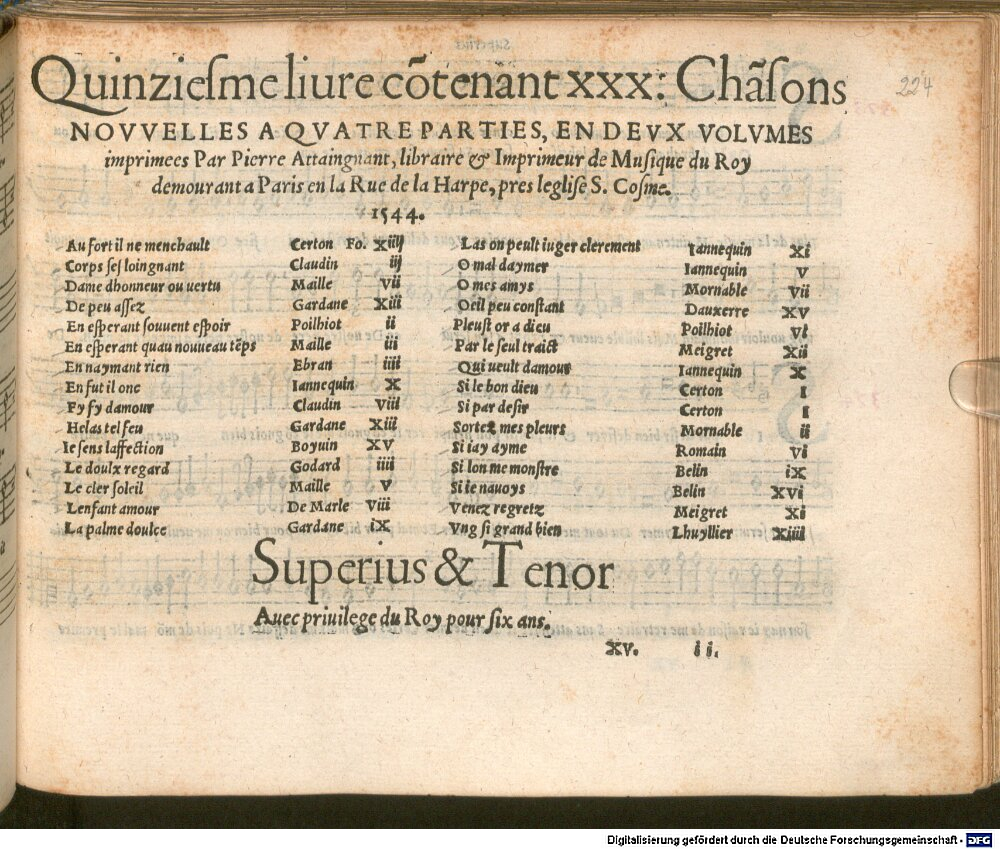 Quinziesme liure cõtenant xxx: Chãsons
NOVVELLES A QVATRE PARTIES, EN DEVX VOLVMES
imprimees Par Pierre Attaingnant, libraire & Imprimeur de Musique du Roy
demourant a Paris en la Rue de la Harpe, pres leglise S. Cosme.
1544.
Au fort il ne menchault Certon Fo. xiiij
Corps ses loingnant Claudin iij
Dame dhonneur ou uertu Maille vii
De peu assez Gardane xiii
En esperant souuent espoir Poilhiot ii
En esperant quau nouueau tẽps Maille iii
En naymant rien Ebran iiii
En fut il onc Iannequin x
Fy fy damour Claudin viii
Helas tel feu Gardane xiii
Ie sens laffection Boyuin xv
Le doulx regard Godard iiii
Le cler soleil Maille v
Lenfant amour De Marle viii
La palme doulce Gardane ix
Las on peult iuger clerement Iannequin xi
O mal daymer Iannequin v
O mes amys Mornable vii
Oeil peu constant Dauxerre xv
Pleust or a dieu Poilhiot vi
Par le seul traict Meigret xii
Qui ueult damour Iannequin x
Si le bon dieu Certon i
Si par desir Certon i
Sortez mes pleurs Mornable ii
Si iay ayme Romain vi
Si lon me monstre Belin ix
Si ie nauoys Belin xvi
Venez regretz Meigret xi
Vng si grand bien Lhuyllier xiiii
Superius & Tenor
Auec priuilege du Roy pour six ans.
xv. ii.
224
Digitalisierung gefördert durch die Deutsche Forschungsgemeinschaft - DFG